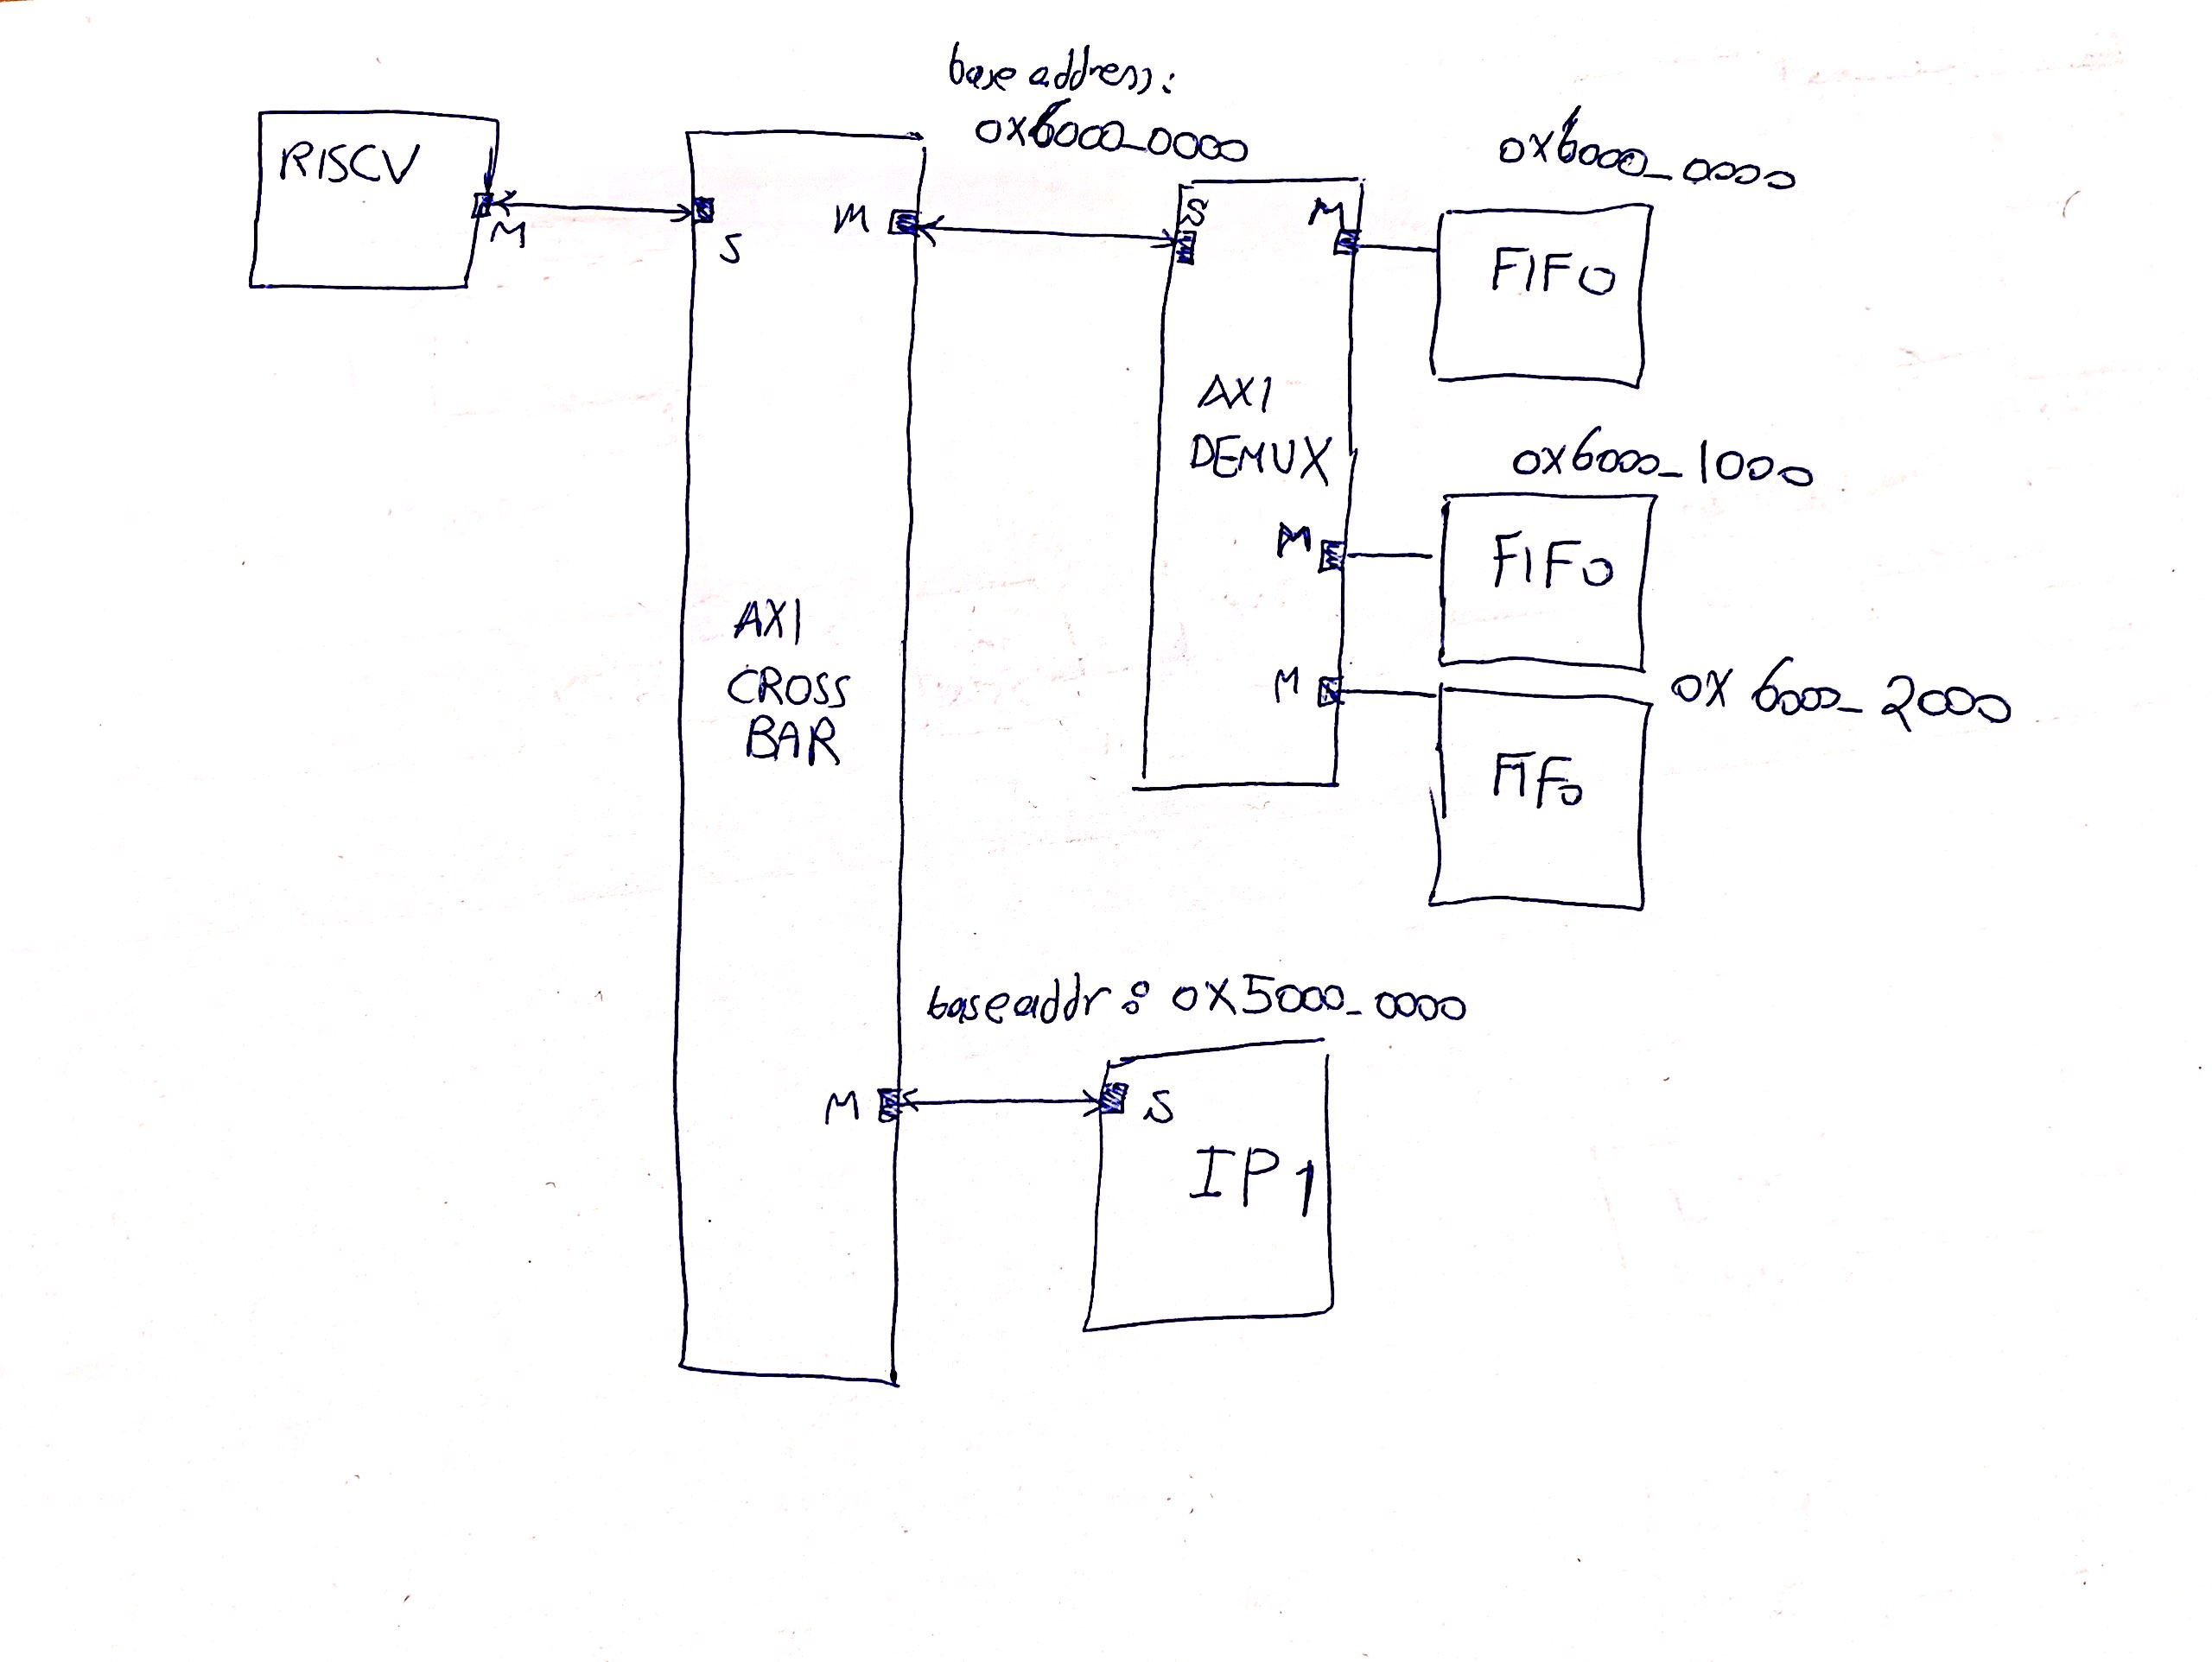 base address:
0x6000_0000
RISCV
M
S
M
S
M
0x6000_0000
FIFO
AXI
DEMUX
0x6000_1000
M
FIFO
M
0x6000_2000
FIFO
AXI
CROSS
BAR
baseaddr: 0x5000_0000
M
S
IP1